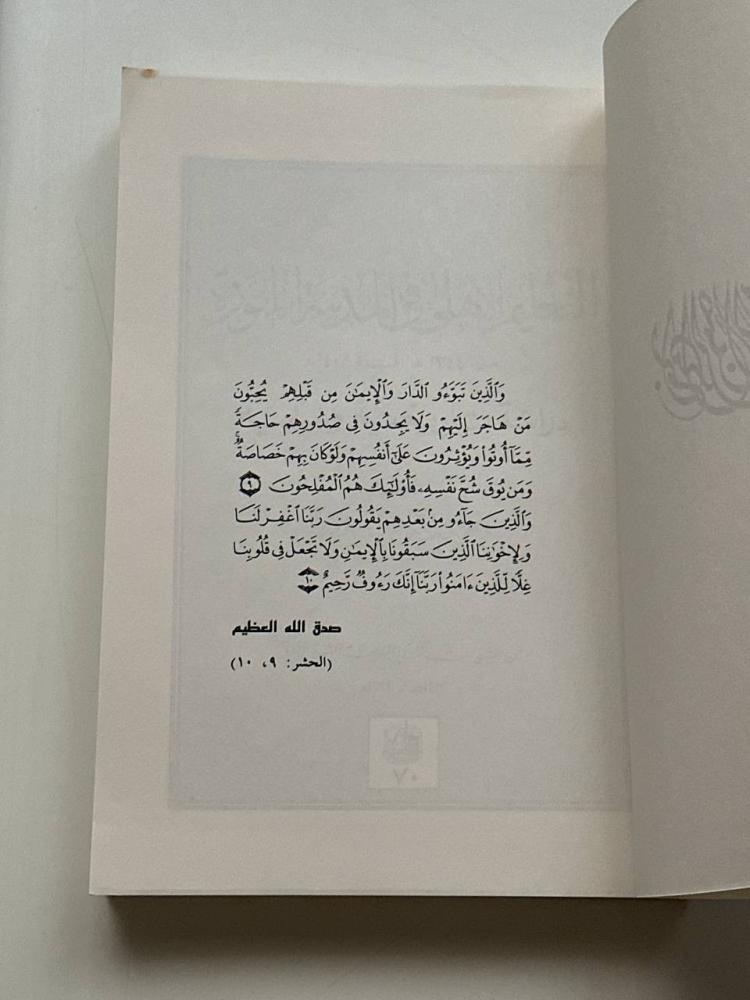 وَٱلَّذِينَ تَبَوَّءُو ٱلدَّارَ وَٱلْإِيمَٰنَ مِن قَبْلِهِمْ يُحِبُّونَ
مَنْ هَاجَرَ إِلَيْهِمْ وَلَا يَجِدُونَ فِى صُدُورِهِمْ حَاجَةً
مِّمَّآ أُوتُوا۟ وَيُؤْثِرُونَ عَلَىٰٓ أَنفُسِهِمْ وَلَوْ كَانَ بِهِمْ خَصَاصَةٌ ۚ
وَمَن يُوقَ شُحَّ نَفْسِهِۦ فَأُو۟لَٰٓئِكَ هُمُ ٱلْمُفْلِحُونَ ٩
وَٱلَّذِينَ جَآءُو مِنۢ بَعْدِهِمْ يَقُولُونَ رَبَّنَا ٱغْفِرْ لَنَا
وَلِإِخْوَٰنِنَا ٱلَّذِينَ سَبَقُونَا بِٱلْإِيمَٰنِ وَلَا تَجْعَلْ فِى قُلُوبِنَا
غِلًّا لِّلَّذِينَ ءَامَنُوا۟ رَبَّنَآ إِنَّكَ رَءُوفٌ رَّحِيمٌ ١٠
صدق الله العظيم
(الحشر: ٩، ١٠)